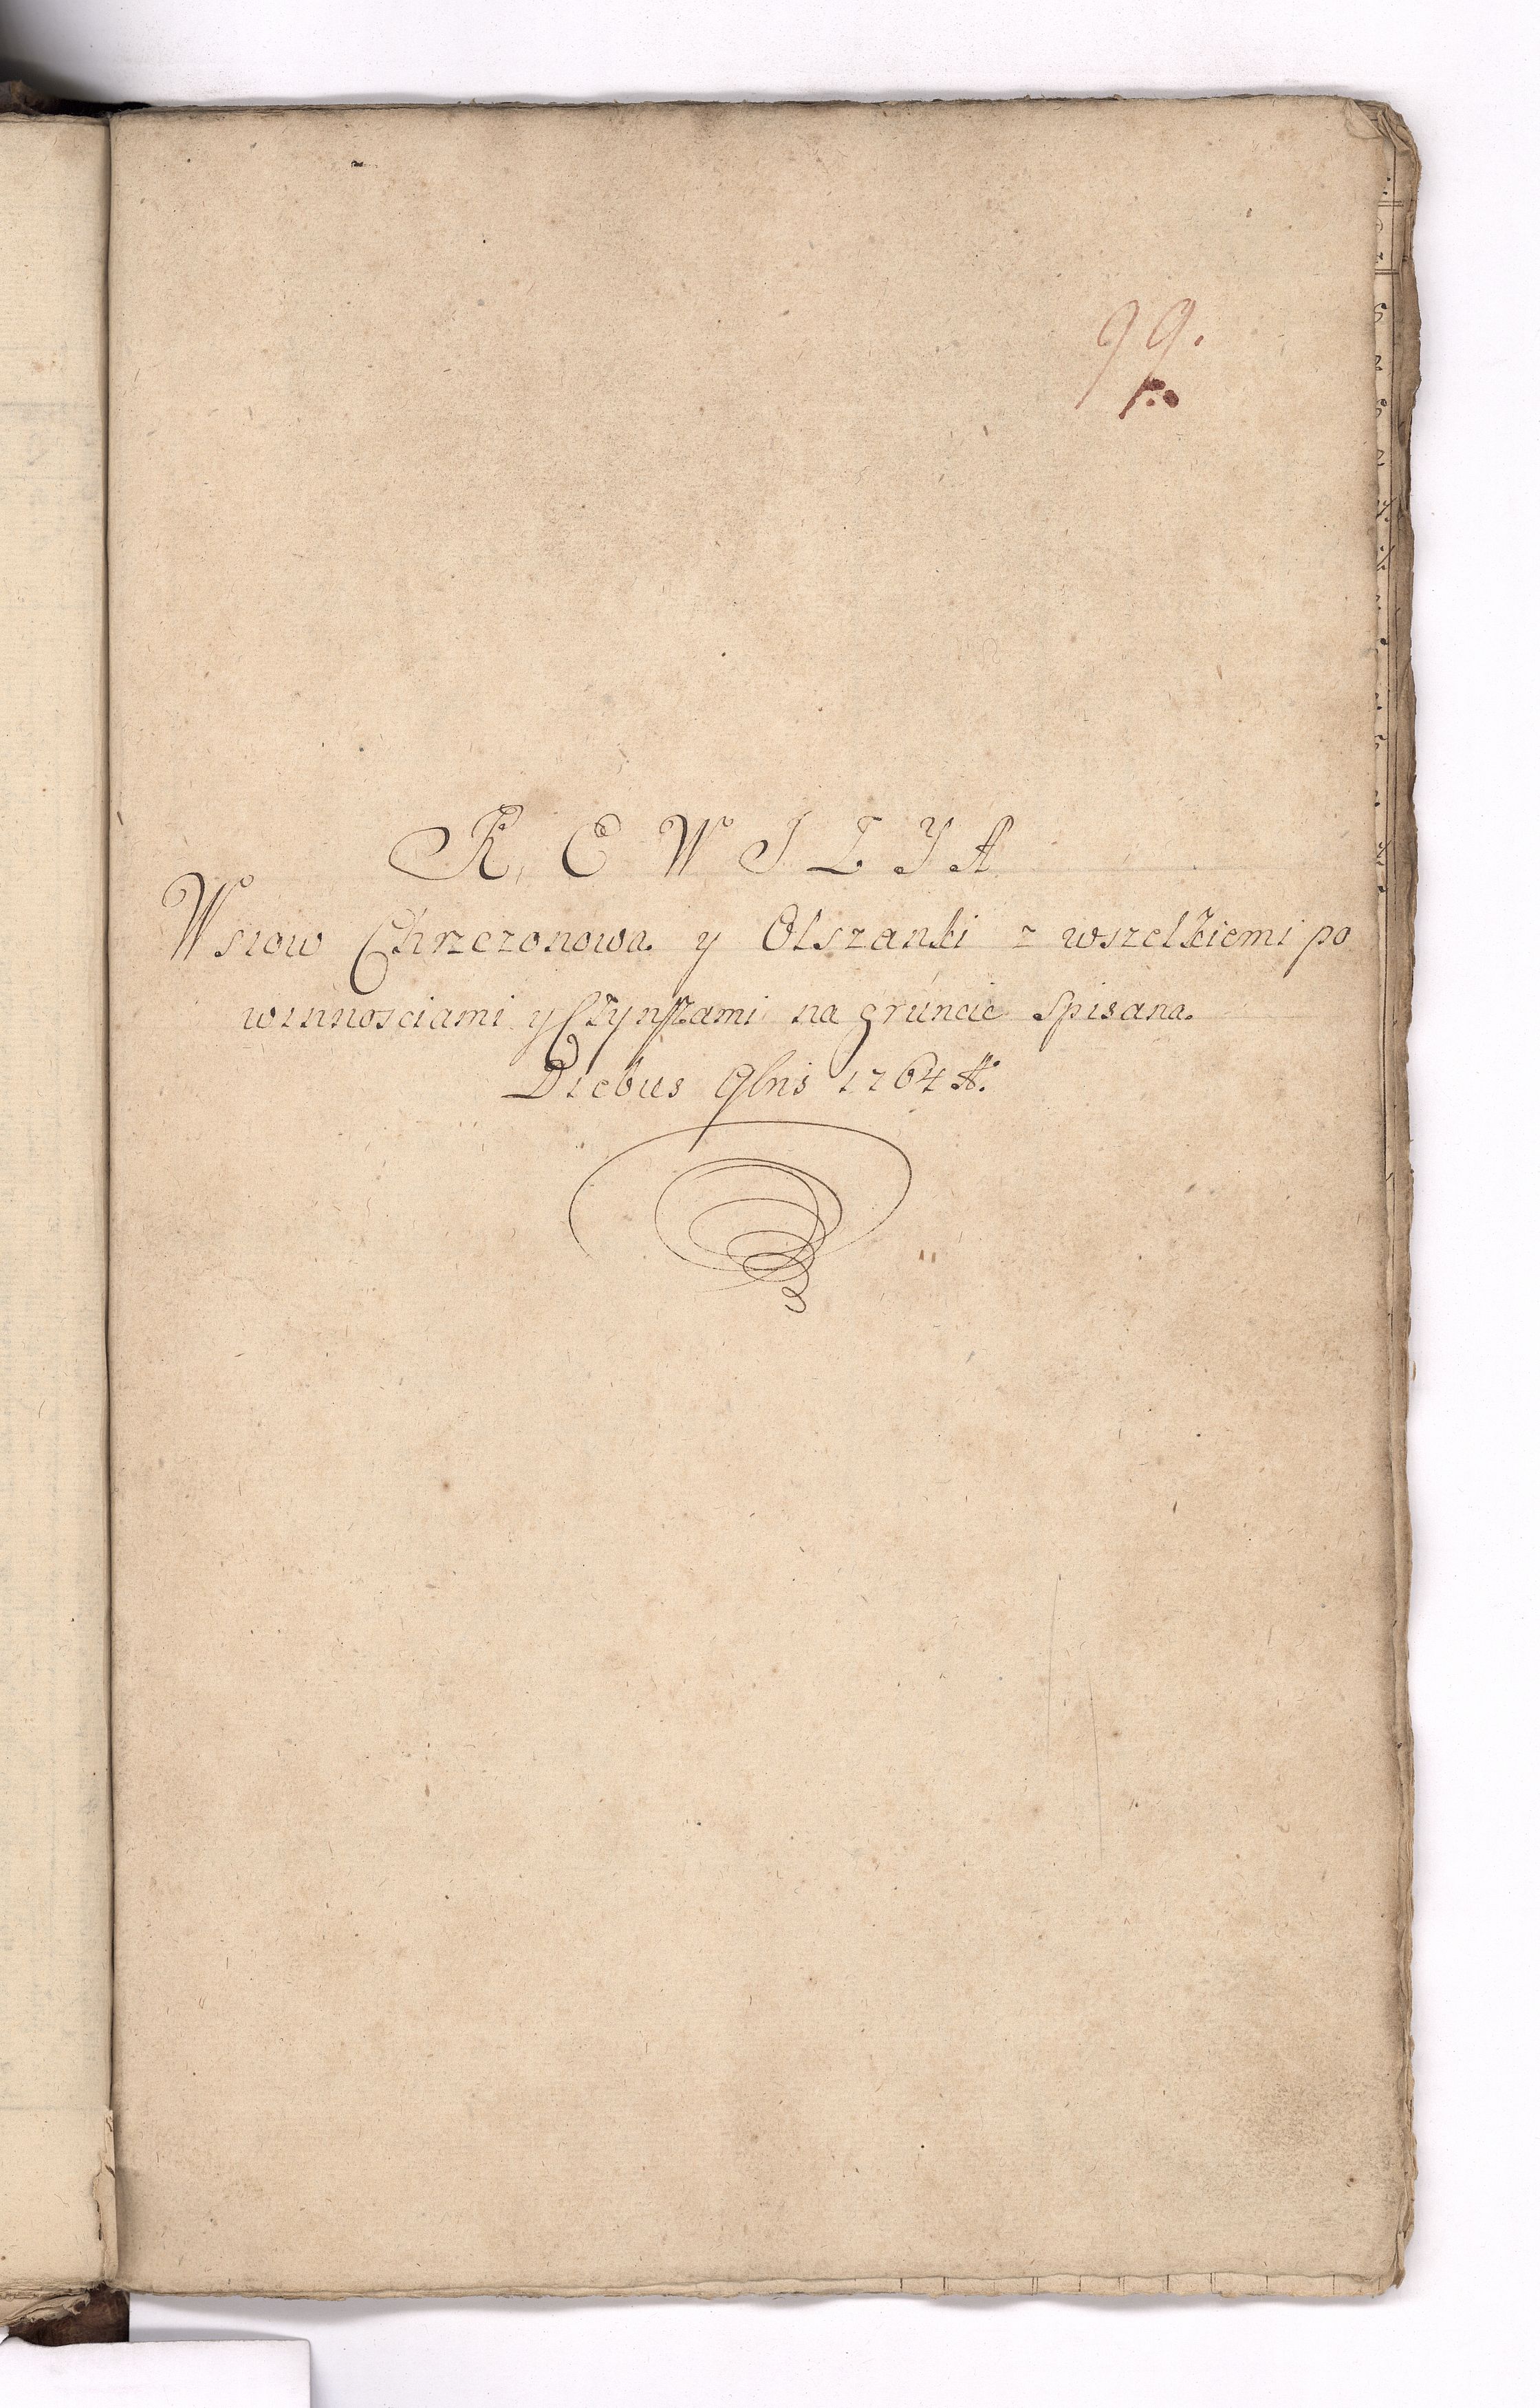 99.
REWIZYA
Wsiow Chrzczonowa y Olszanki z wszelkiemi po
winnosciami y Czynszami na grúncie spisana.
Diebus 9bris 1764 A.